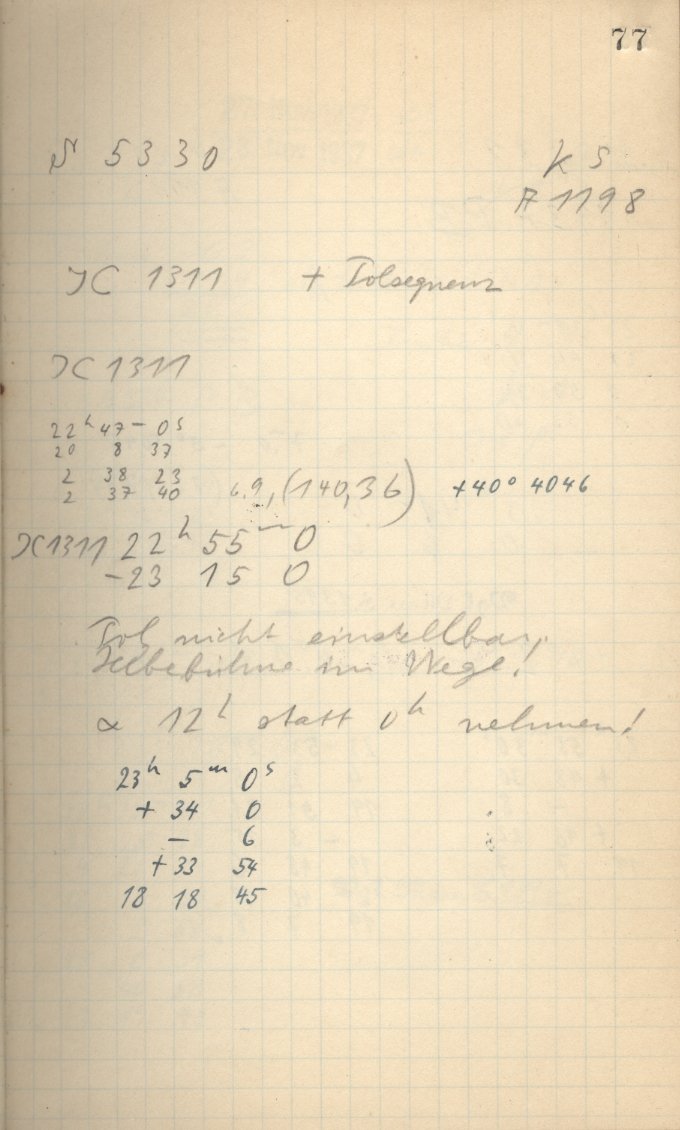 77
S 5330 KS
A 1198
JC 1311 + Polsequenz
JC 1311
22ʰ 47ᵐ 0ˢ
20 8 37
2 38 23
2 37 40 6.9, (140,36) +40° 4046
JC1311 22ʰ 55ᵐ 0
-23 15 0
Pol nicht einstellbar,
Hebebühne im Wege!
α 12ʰ statt 0ʰ nehmen!
23ʰ 5ᵐ 0ˢ
+ 34 0
– 6
+ 33 54
18 18 45